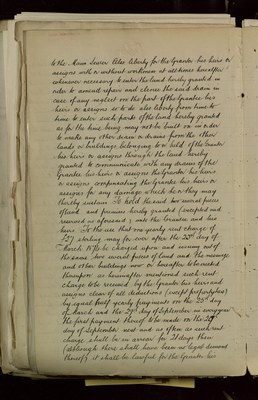 to the Main Sewer Also liberty for the Grantee his heirs or
assigns with or without workmen at all times hereafter
whenever necessary to enter the land hereby granted in
order to amend repair and cleanse the said drain in
case of any neglect on the part of the Grantee his
heirs or assigns so to do also liberty from time to
time to enter such parts of the land hereby granted
as for the time being may not be built on in order
to make any other drain or drains from the other
lands or buildings belonging to or held of the Grantor
his heirs or assigns through the land hereby
granted to communicate with any drains of the
Grantee his heirs or assigns the Grantor his heirs
or assigns compensating the Grantee his heirs or
assigns for any damage which he or they may
thereby sustain To hold the said two several pieces
of land and premises hereby granted (excepted and
reserved as aforesaid) unto the Grantee and his
heirs To the use that one yearly rent charge of
£27 sterling may for ever after the 25th day of
March be charged upon and issuing out of
the same two several pieces of land and the messuage
and other buildings now or hereafter to be erected
thereupon as hereinafter mentioned such rent
charge to be received by the Grantor his heirs and
assigns clear of all deductions (except property tax)
by equal half yearly payments on the 25th day
of March and the 29th day of September in every year
the first payment thereof to be made on the 29th
day of September next and as often as such rent
charge shall be in arrear for 21 days then
(although there shall have been no legal demand
thereof) it shall be lawful for the Grantor his